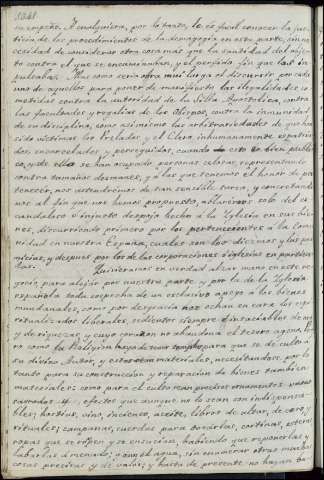 su empeño. A cualquiera, por lo tanto, le és facil conocer la jus-
ticia de los procedimientos de la demagogia en esta parte, sin ne-
cesidad de considerar otra cosa más que la santidad del obje-
to contra el que se encaminaban, y el perfido fin que los im-
pulsaba. Mas como seria obra muy larga el discurrir por cada
uno de aquellos para poner de manifiesto las ilegalidades co-
metidas contra la autoridad de la Silla Apostolica, contra
las facultades y regalias de los Obispos, contra la inmunidad
de su disciplina, como asimismo las arbitrariedades de que han
sido victimas los Prelados y el Clero inhumanamente espatria-
dos, encarcelados y perseguidos, cuando esto es bien publi-
co, y de ello se han ocupado personas celosas, representando
contra tamaños desmanes, y á las que tenemos el honor de per-
tenecer, nos astendremos de tan sensible tarea, y concretando-
nos al fin que nos hemos propuesto, hablaremos solo del es-
candaloso é injusto despojo hecho á la Iglesia en sus bie-
nes, discurriendo primero por los pertenecientes á la Comu-
nidad en nuestra España, cuales son los diezmos y las pri-
micias, y despues por los de las corporaciones é iglesias en particu-
lar.
Quisieramos en verdad alzar mano en este ne-
gocio, para alejar por nuestra parte y por la de la Iglesia
española toda sospecha de un esclusivo apego á los bienes
mundanales, como por desgracia nos echan en cara los espi-
ritualizados liberales, sedientos siempre é insaciables de oro
y de riquezas, y cuyo corazon no abandona el tesoro ageno. Pe-
ro como la Religion haya de tener templos para que se dé culto á
su divino Autor, y estos sean materiales, necesitandose por lo
tanto para su construccion y reparacion de bienes tambien
materiales: como para el culto sean precisos ornamentos, vasos
sagrados &. efectos que aunque no lo sean son indispensa-
bles; hostias, vino, incienso, aceite, libros de altar, de coro, y
rituales; campanas, cuerdas para tocarlas, cortinas, esteras,
ropas que se rompen y se ensucian, habiendo que reponerlas y
labarlas á menudo; aun el agua, sin enumerar otras muchas
cosas precisas y de valor; y hasta de presente no hayan ba-